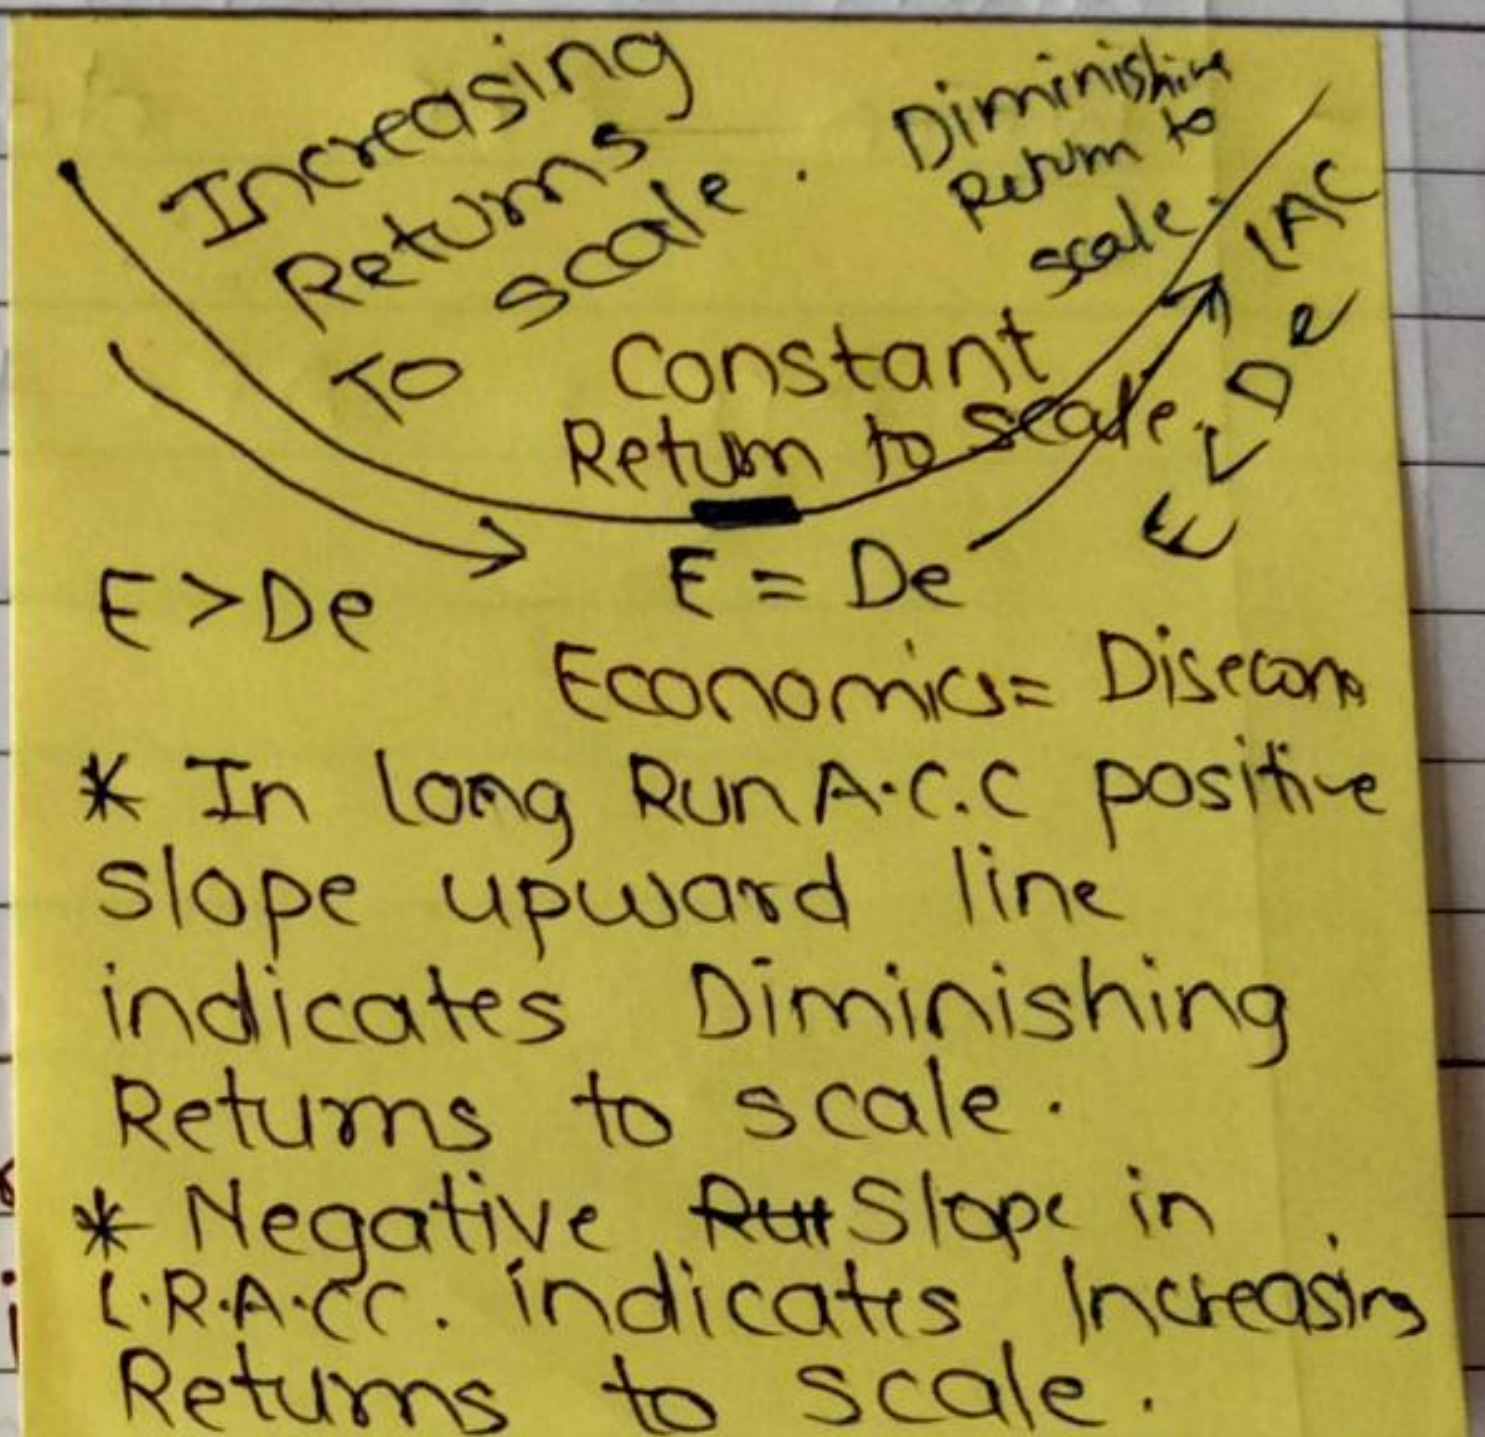 Increasing
Returns
To scale.
Diminishing
Return to
scale.
LAC
Constant
Return to scale.
E < De
E > De
E = De
Economics = Disecono
* In long Run A.C.C positive
slope upward line
indicates Diminishing
Returns to scale.
* Negative Run Slope in
L.R.A.CC. indicates Increasing
Returns to scale.